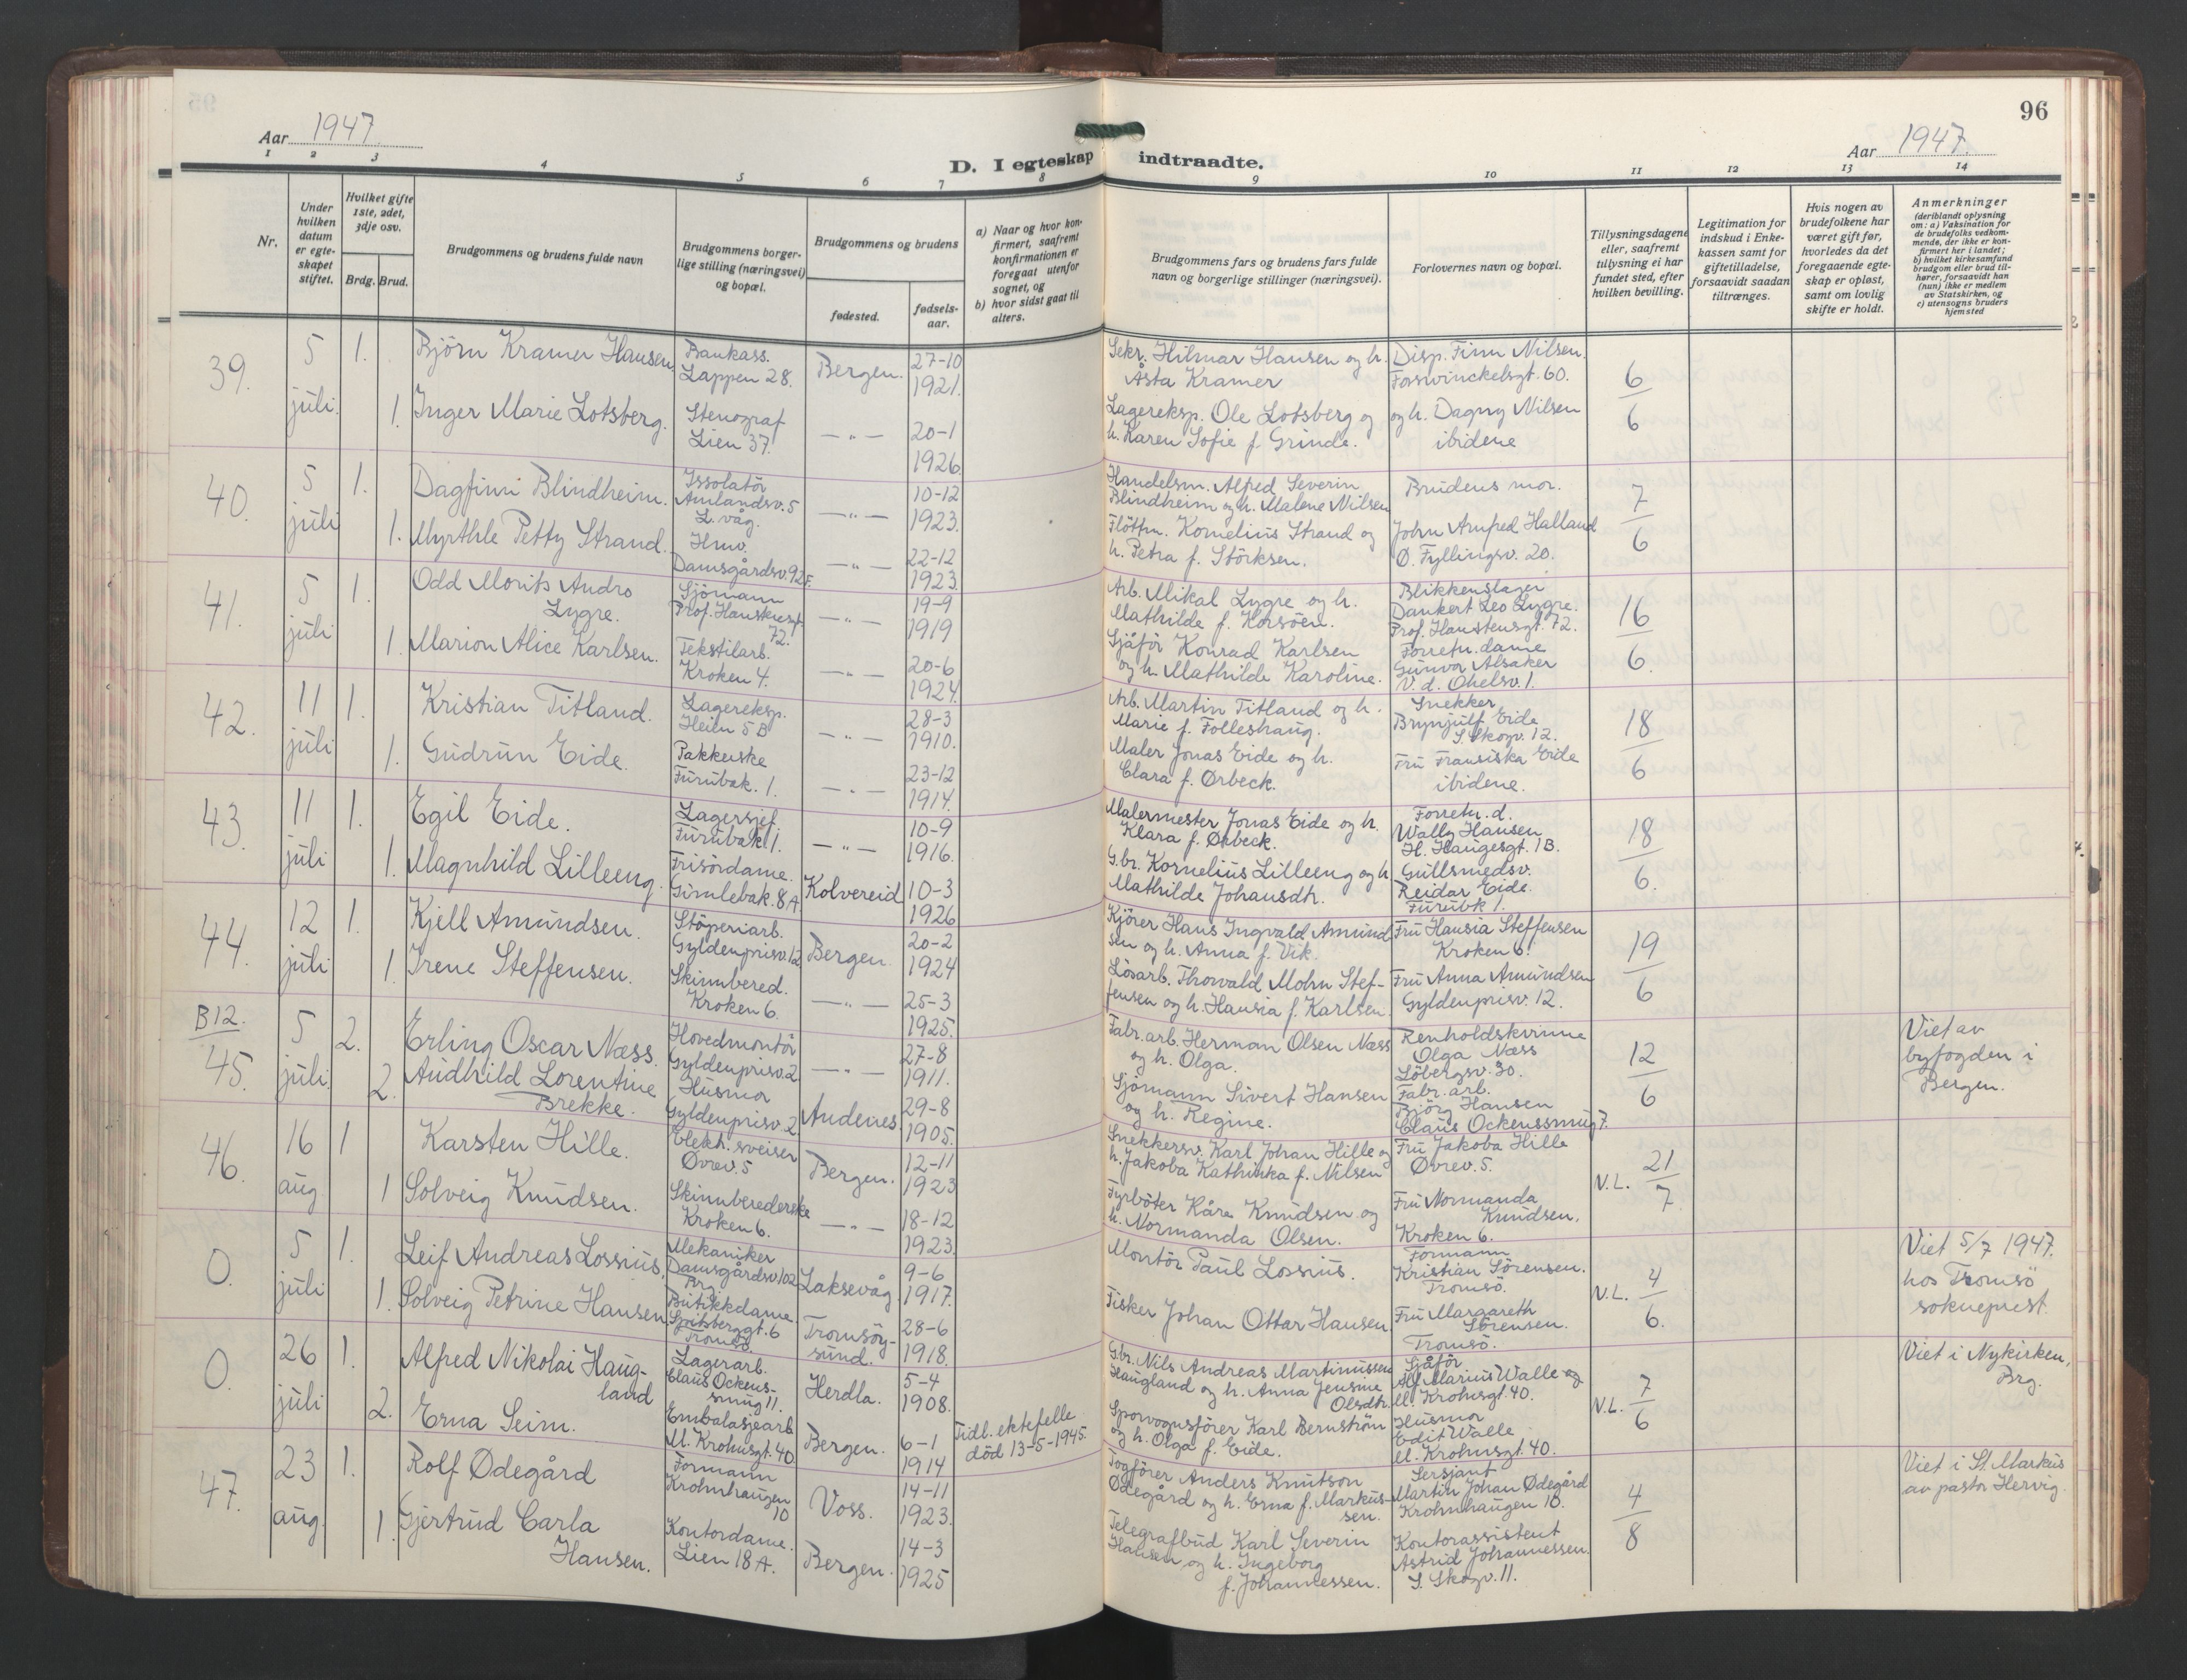 96
Aar 1947
Aar 1947.
D. I egteskap indtraadte.
1 2 3 4 5 6 7 8 9 10 11 12 13 14
Nr.
Under hvilken datum er egteskapet stiftet.
Hvilket gifte 1ste, 2det, 3dje osv.
Brdg. Brud.
Brudgommens og brudens fulde navn
Brudgommens borgerlige stilling (næringsvei) og bopæl.
Brudgommens og brudens
fødested.
fødselsaar.
a) Naar og hvor konfirmert, saafremt konfirmationen er foregaat utenfor sognet, og
b) hvor sidst gaat til alters.
Brudgommens fars og brudens fars fulde navn og borgerlige stillinger (næringsvei).
Forlovernes navn og bopæl.
Tillysningsdagene eller, saafremt tillysning ei har fundet sted, efter hvilken bevilling.
Legitimation for indskud i Enkekassen samt for giftetilladelse, forsaavidt saadan tiltrænges.
Hvis nogen av brudefolkene har været gift før, hvorledes da det foregaaende egteskap er opløst, samt om lovlig skifte er holdt.
Anmerkninger
(deriblandt oplysning om: a) Vaksination for de brudefolks vedkommende, der ikke er konfirmert her i landet; b) hvilket kirkesamfund brudgom eller brud tilhører, forsaavidt han (hun) ikke er medlem av Statskirken, og c) utensogns bruders hjemsted
39. 5 juli 1. Björn Kramer Hansen Bankass. Lappen 28. Bergen. 27-10 1921.
Sekr. Hilmar Hansen og h. Åsta Kramer
Disp. Finn Nilsen. Forswinckelsgt. 60.
6/6
1. Inger Marie Lotsberg. Stenograf Lien 37. — " — 20-1 1926
Lagereksp. Ole Lotsberg og h. Karen Sofie f. Grinde.
og h. Dagny Nilsen ibidene
40. 5 juli 1. Dagfinn Blindheim. Issolatör Amlandsv. 5 L.våg. — " — 10-12 1923.
Handelsm. Alfred Severin Blindheim og h. Malene Nilsen
Brudens mor.
7/6
1. Myrthle Petty Strand. Hmv. Damsgårdsv. 92 F. — " — 22-12 1923.
Flöttm. Kornelius Strand og h. Petra f. Störksen.
John Arnfred Halland Ø. Fyllingsv. 20.
41. 5 juli 1. Odd Morits Andro Lygre. Sjömann Prof. Hansteensgt. 72. — " — 19-9 1919
Arb. Mikal Lygre og h. Mathilde f. Korsöen.
Blikkenslager Dankert Leo Lygre. Prof. Hanstensgt. 72.
16/6.
1. Marion Alice Karlsen. Tekstilarb. Kroken 4. — " — 20-6 1924.
Sjåför Konrad Karlsen og h. Mathilde Karoline.
Forretn. dame Gunvor Alsaker V. d. Ohelsv. 1.
42. 11 juli 1. Kristian Titland. Lagereksp. Heien 5 B — " — 28-3 1910.
Arb. Martin Titland og h. Marie f. Folleshaug.
Snekker Brynjulf Eide S. Skogv. 12.
18/6
1. Gudrun Eide. Pakkerske Furubak. 1. — " — 23-12 1914.
Maler Jonas Eide og h. Clara f. Ørbeck.
Fru Fransiska Eide ibidene.
43. 11 juli 1. Egil Eide. Lagersjef Furubak 1. — " — 10-9 1916.
Malermester Jonas Eide og h. Klara f. Ørbeck.
Forretn. d. Wally Hansen H. Haugesgt. 1B.
18/6.
1. Magnhild Lilleeng. Frisördame. Gimlebak. 8 A. Kolvereid 10-3 1926
G.br. Kornelius Lilleeng og h Mathilde Johansdtr.
Gullsmedsv. Reidar Eide. Furubk 1.
44. 12 juli 1. Kjell Amundsen. Stöperiarb. Gyldenprisv. 12 Bergen. 20-2 1924
Kjörer Hans Ingvald Amundsen og h. Anna f. Vik.
Fru Hansia Steffensen Kroken 6.
19/6
1 Irene Steffensen. Skinnbered. Kroken 6. — " — 25-3 1925.
Lösarb. Thorvald Mohn Steffensen og h. Hansia f. Karlsen.
Fru Anna Amundsen Gyldenprisv. 12.
B12.
45. 5 juli 2. Erling Oscar Næss. Hovedmontör Gyldenprisv. 2 — " — 27-8 1911.
Fabr. arb. Herman Olsen Næss og h. Olga.
Renholdskvinne Olga Næss Löbergsv. 30.
12/6
Viet av byfogden i Bergen.
2. Audhild Lorentine Brekke. Husmor Gyldenprisv. 2 Andenes 29-8 1905.
Sjömann Sivert Hansen og h. Regine.
Fabr. arb. Björg Hansen Claus Ockenssmug 7.
46. 16 aug 1 Karsten Hille. Elektr. sveiser Øvrev. 5 Bergen. 12-11 1923
Snekkersv. Karl Johan Hille og h. Jakoba Kathinka f. Nilsen
Fru Jakoba Hille Øvrev. 5.
N.L. 21/7
1 Solveig Knudsen. Skinnberederske Kroken 6. — " — 18-12 1923.
Fyrböter Kåre Knudsen og h. Normanda Olsen.
Fru Normanda Knudsen, Kroken 6.
0. 5 juli 1. Leif Andreas Lossius, Mekaniker Damsgårdsv. 102 Brg. Laksevåg 9-6 1917.
Montör Paul Lossius.
Formann Kristian Sörensen. Tromsö.
N.L. 4/6.
Viet 5/7 1947. hos Tromsö sokneprest.
1. Solveig Petrine Hansen Butikkdame Spitsberggt. 6 Tromsö. Tromsöysund. 28-6 1918.
Fisker Johan Ottar Hansen.
Fru Margareth Sörensen. Tromsö.
0. 26 juli 1. Alfred Nikolai Haugland Lagerarb. Claus Ockenssmug 11. Herdla. 5-4 1908.
G.br. Nils Andreas Martinussen Haugland og h. Anna Jensine Olsdtr.
Sjåför Alf Marius Walle og M. Krohnsgt. 40.
N.L. 7/6
Viet i Nykirken, Brg.
2. Erna Seim. Embalasjearb M. Krohnsgt. 40 Bergen. 6-1 1914
Tidl. ektefelle död 13-5-1945.
Sporvognsförer Karl Bernström og h. Olga f. Eide.
Husmor Edit Walle M. Krohnsgt. 40.
47. 23 aug. 1. Rolf Ødegård Formann Krohnhaugen 10 Voss. 14-11 1923.
Togförer Anders Knutson Ødegård og h. Erna f. Markussen.
Sersjant Martin Johan Ødegård Krohnhaugen 10.
4/8
Viet i St. Markus av pastor Hervig.
1. Gjertrud Carla Hansen. Kontordame. Lien 18 A. Bergen. 14-3 1925
Telegrafbud Karl Severin Hansen og h. Ingeborg f. Johannessen.
Kontorassistent Astrid Johannessen. S. Skogv. 11.